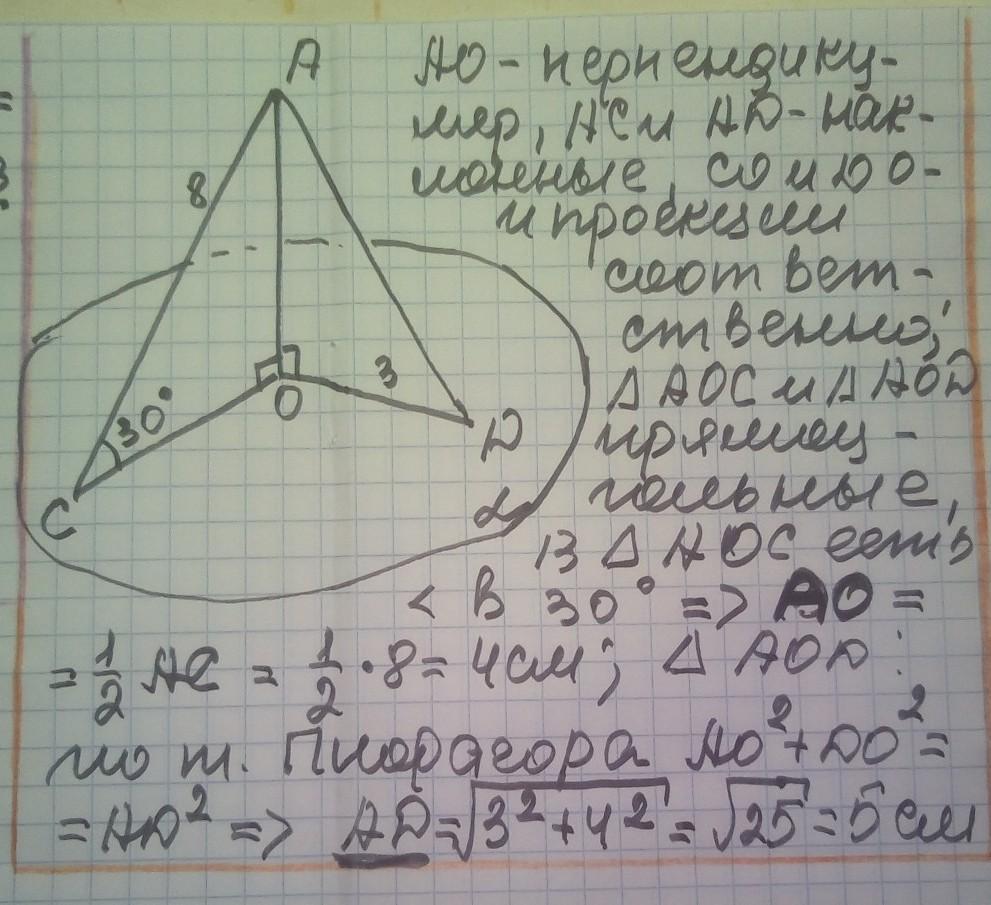 A
AO - перпендику-
ляр, AC и AD - нак-
8
лонные, CO и DO -
и проекции
соответ-
ственно;
3
△AOC и △AOD
O
30°
D
прямоу-
гольные,
C
α
В △AOC есть
< В 30° => AO =
= 1/2 AC = 1/2 · 8 = 4 см; △ AOD:
по т. Пифагора AO² + DO² =
= AD² => AD = √3² + 4² = √25 = 5 см